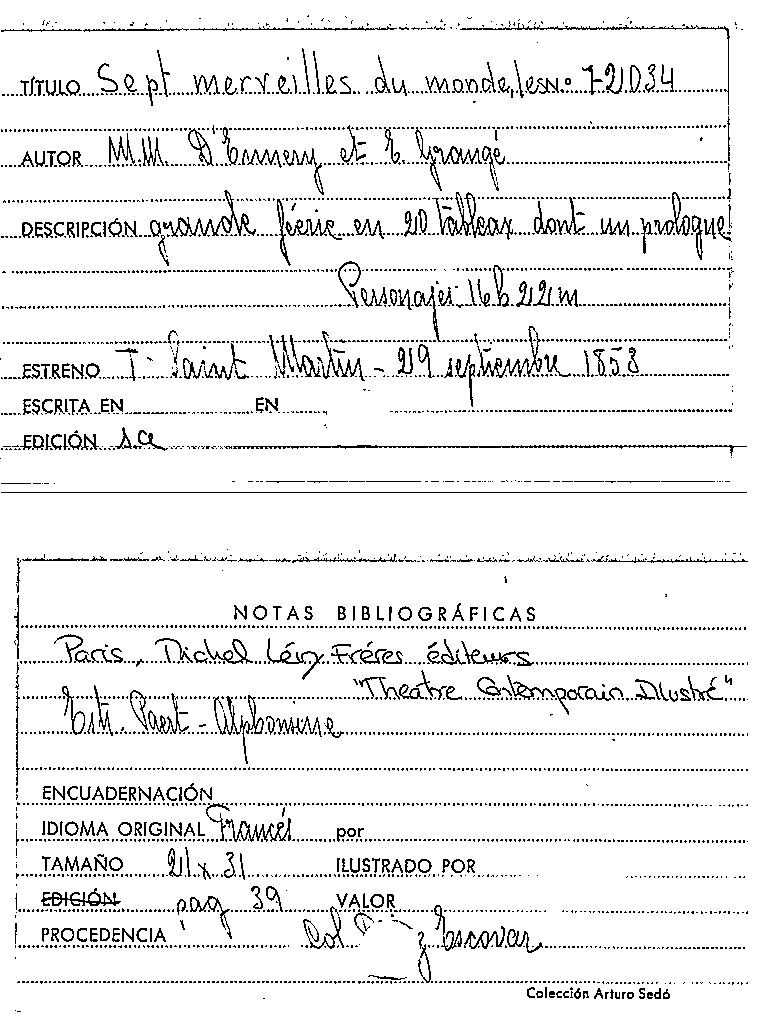 TÍTULO Sept merveilles du monde, les N.º 1-21034
AUTOR M.M. D'Ennery et E. Grangé
DESCRIPCIÓN grande féerie en 20 tableax dont un prologue
Personajes: 16 h 22 m
ESTRENO T. Saint Martin - 29 septiembre 1853
ESCRITA EN EN
EDICIÓN
NOTAS BIBLIOGRÁFICAS
Paris, Michel Lévy Fréres éditeurs
"Theatre Contemporain Illustré"
Estr. - Alphonsine
ENCUADERNACIÓN
IDIOMA ORIGINAL Francés por
TAMAÑO 21 x 31 ILUSTRADO POR
EDICIÓN pag 39 VALOR
PROCEDENCIA Col Escovar
Colección Arturo Sedó